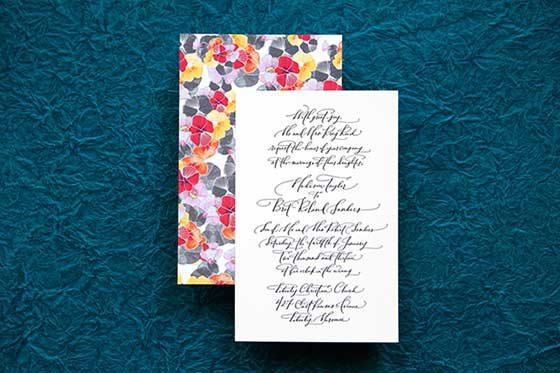 With great joy,
Mr. and Mrs.
request the honor of your company
at the marriage of their daughter,
Madison Taylor
to
Bret Roland Sanders
Son of Mr. and Mrs. Robert Sanders
Saturday, the twelfth of January
Two thousand and thirteen
at five o'clock in the evening
Christian Church
927 East Avenue